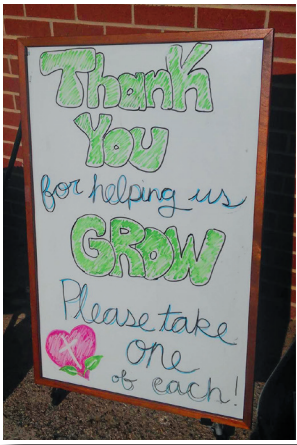 Thank
You
for helping us
GROW
Please take
one
of each!